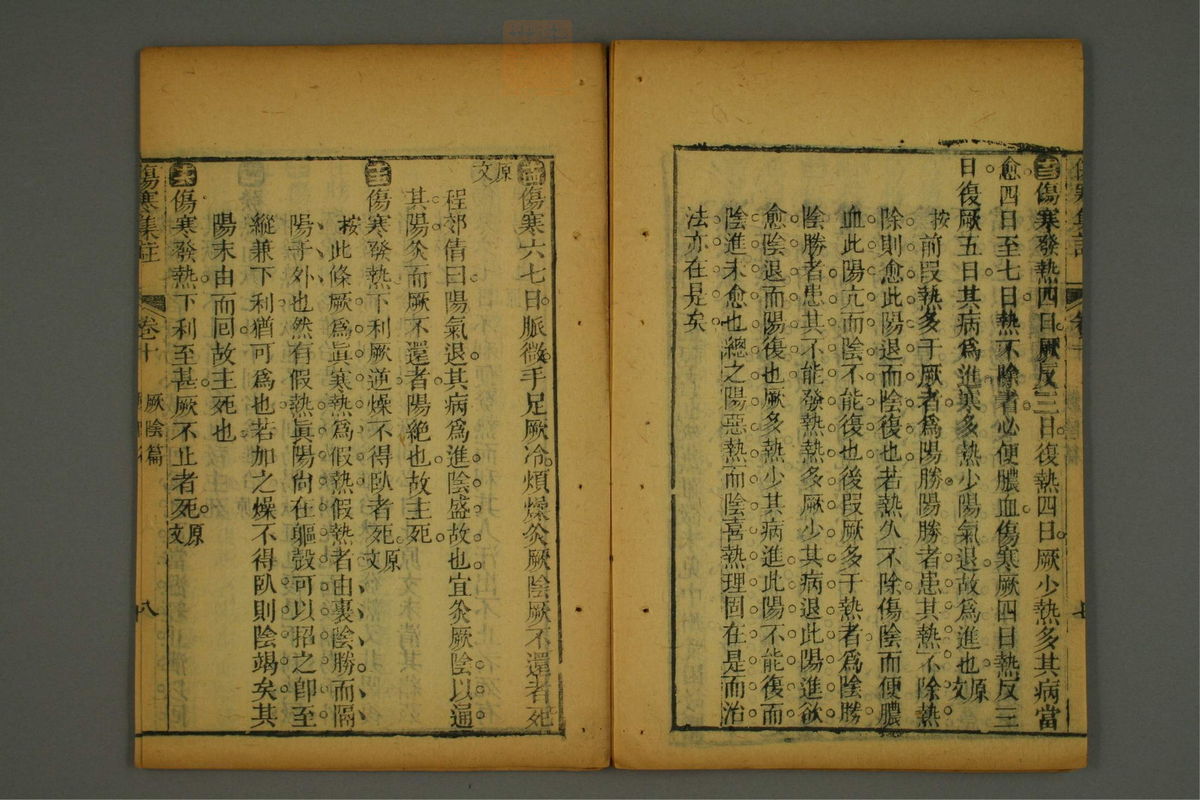 傷寒發熱四日厥反三日復熱四日厥少熱多其病當
愈四日至七日熱不除者必便膿血傷寒厥四日熱反三
日復厥五日其病爲進寒多熱少陽氣退故爲進也原文
按前叚熱多于厥者爲陽勝陽勝者患其熱不除熱
除則愈此陽退而陰復也若熱久不除傷陰而便膿
血此陽亢而陰不能復也後叚厥多于熱者爲陰勝
陰勝者患其不能發熱熱多厥少其病退此陽進欲
愈陰退而陽復也厥多熱少其病進此陽不能復而
陰進未愈也總之陽惡熱而陰喜熱理固在是而治
法亦在是矣
傷寒六七日脈微手足厥冷煩燥灸厥陰厥不還者死
原文
程郊倩曰陽氣退其病爲進陰盛故也宜灸厥陰以通
其陽灸而厥不還者陽絶也故主死
傷寒發熱下利厥逆燥不得臥者死原文
按此條厥爲眞寒熱爲假熱假熱者由裏陰勝而隔
陽于外也然有假熱眞陽尚在軀殼可以招之卽至
縱兼下利猶可爲也若加之燥不得臥則陰竭矣其
陽末由而囘故主死也
傷寒發熱下利至甚厥不止者死原文
傷寒集註 卷十 厥陰篇 八